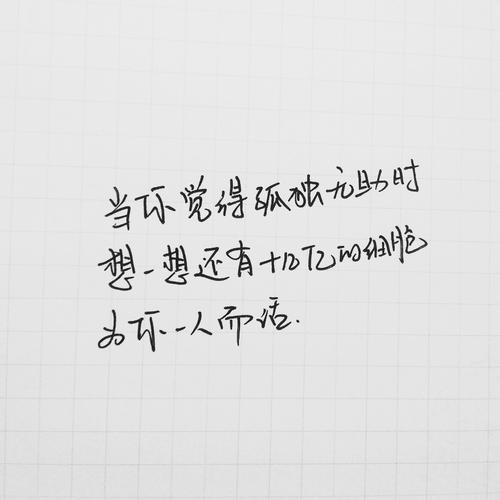 当你觉得孤独无助时
想一想还有十几亿的细胞
为你一人而活.